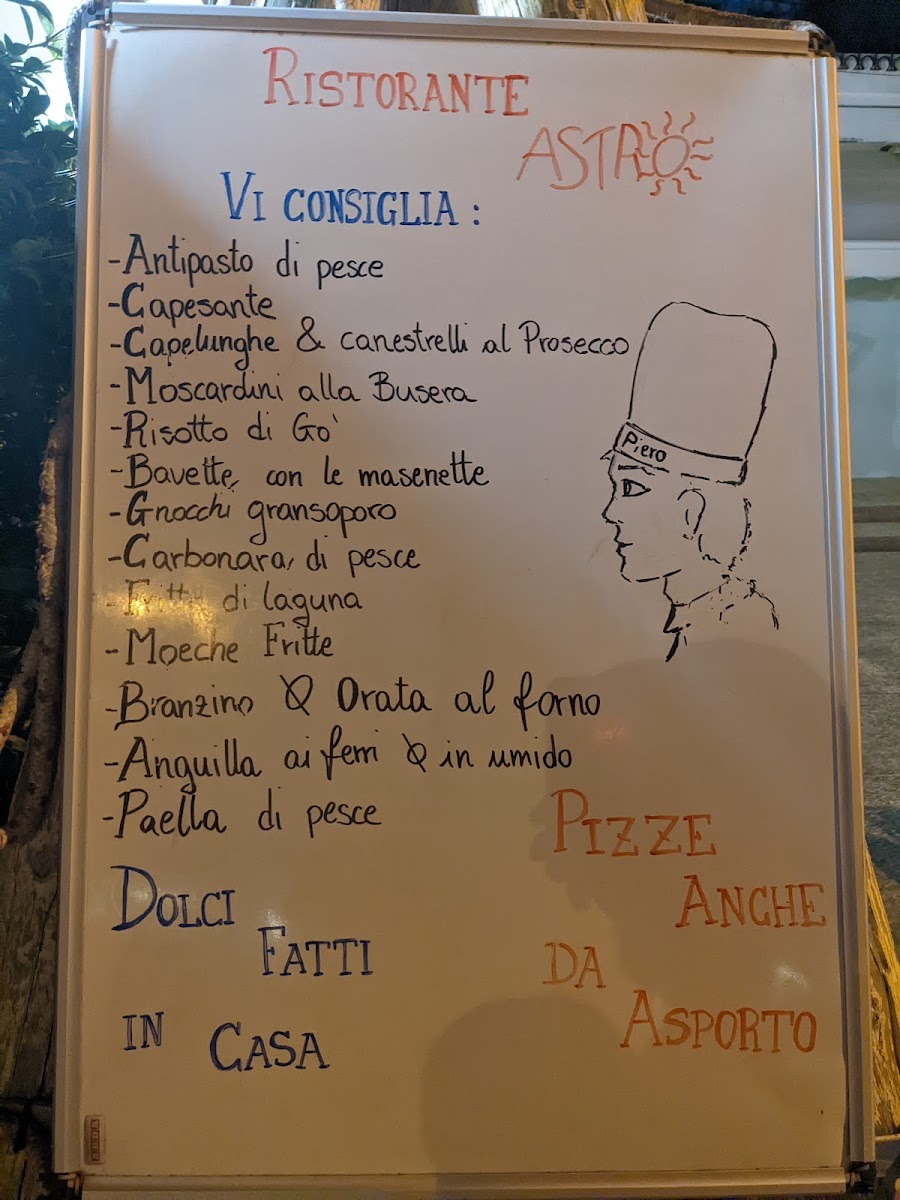 RISTORANTE
ASTRO
VI CONSIGLIA :
-Antipasto di pesce
-Capesante
-Capelunghe & canestrelli al Prosecco
-Moscardini alla Busera
-Risotto di Go'
-Bavette con le masenette
-Gnocchi gransoporo
-Carbonara di pesce
-Fritto di laguna
-Moeche Fritte
-Branzino O Orata al forno
-Anguilla ai ferri O in umido
-Paella di pesce
Piero
DOLCI
FATTI
IN CASA
PIZZE
ANCHE
DA
ASPORTO